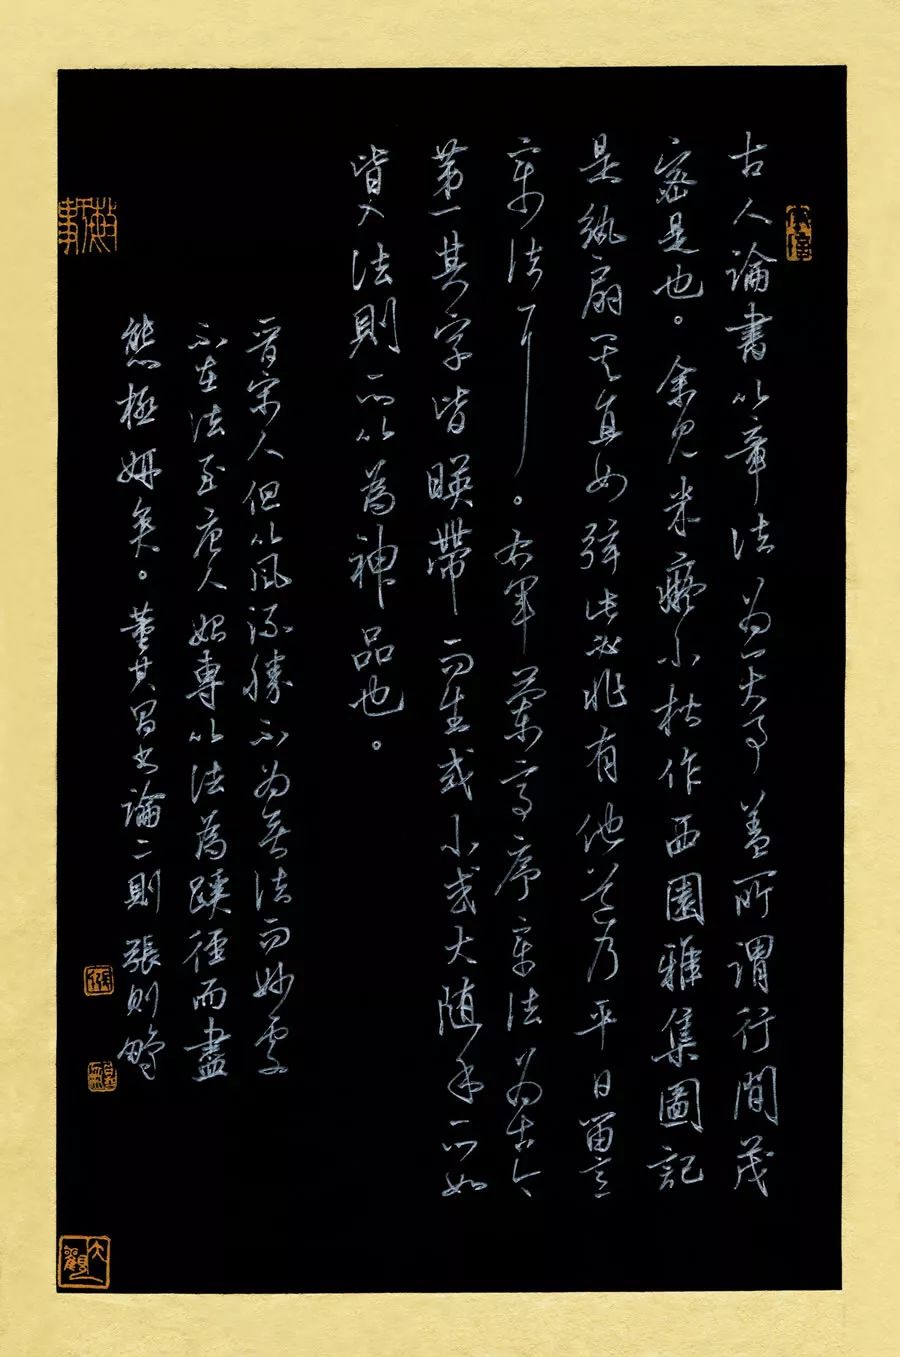 古人論書以章法为一大事盖所謂行間茂
密是也。余見米癡小楷作西園雅集圖記
是紈扇其直如弦此必非有他道乃平日留意
章法耳。右軍蘭亭序章法为古今
第一其字皆暎帶而生或小或大随手所如
皆入法則所以為神品也。
晉宋人但以風流勝不为無法而妙處
不在法至唐人始專以法為蹊徑而盡
態極妍矣。董其昌书論二則 張则
大觀